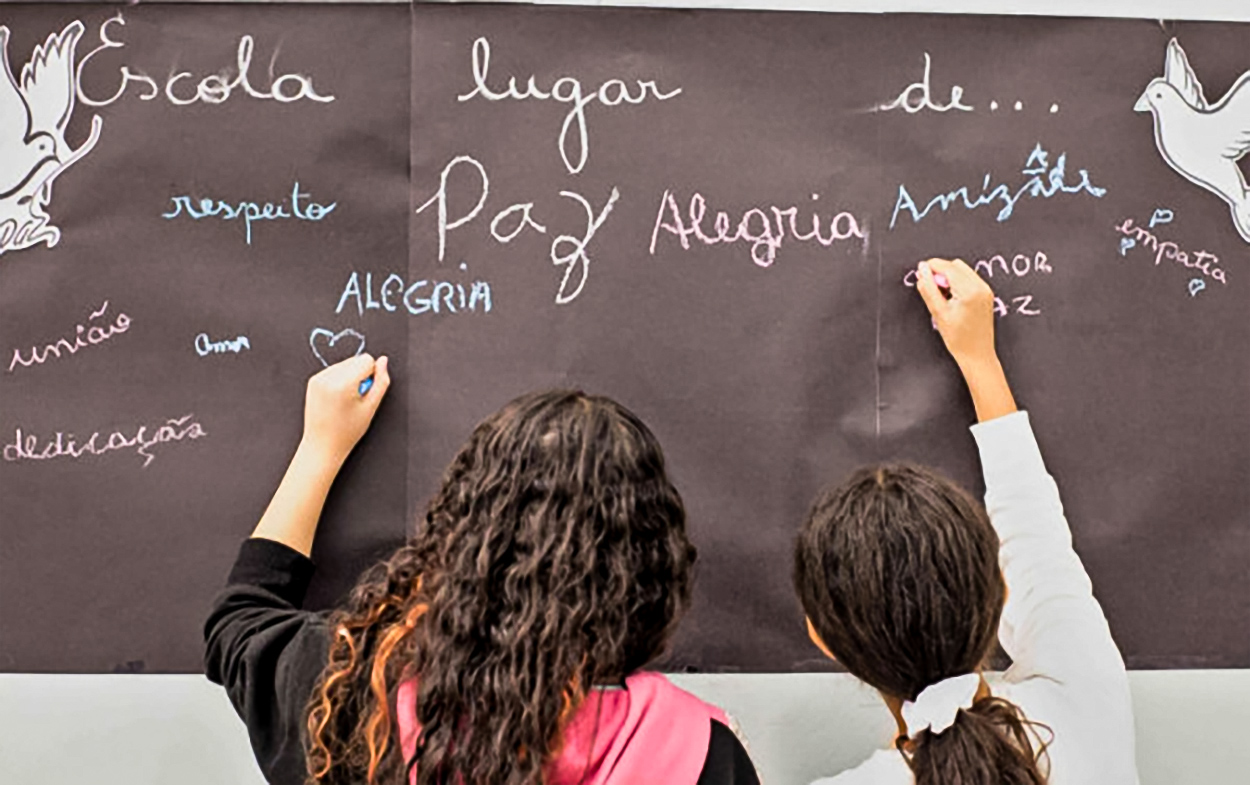 Escola lugar de...
respeito Paz Alegria Amizade
empatia
ALEGRIA
união amor
dedicação